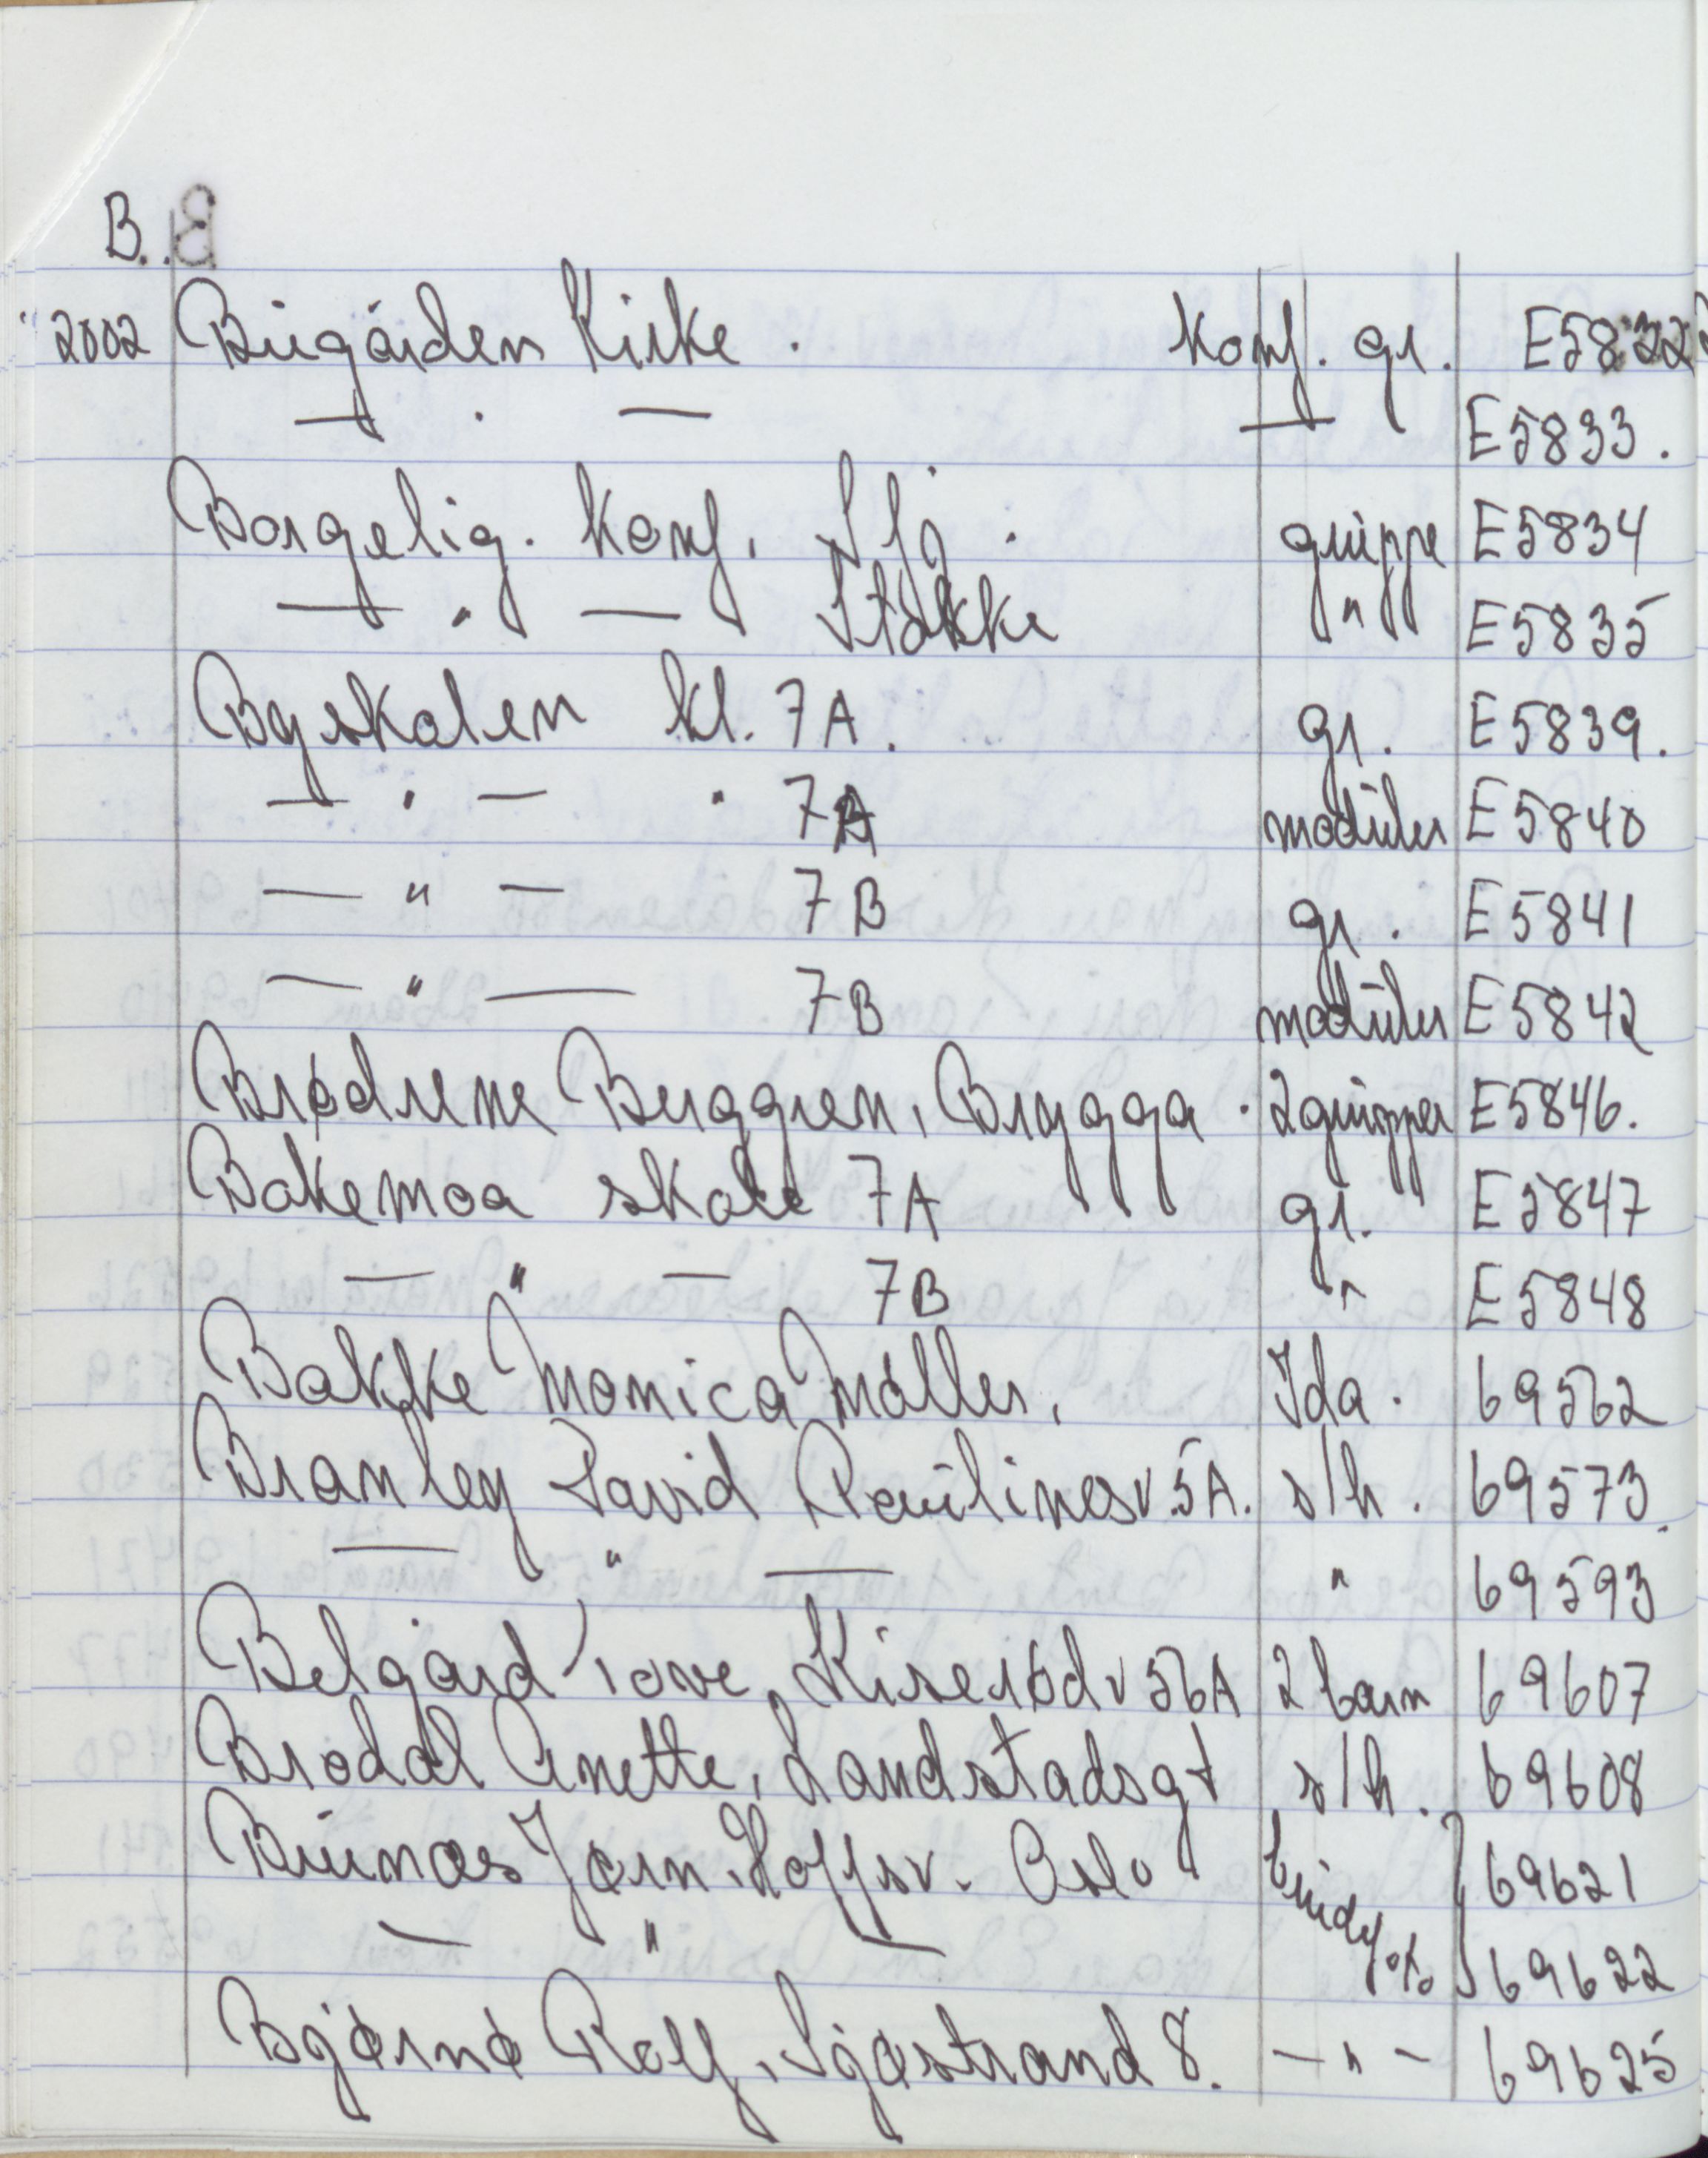 B. B
2002 Bugården Kirke . Konf. gr. E5832
— . — — E5833.
Borgelig. Konf. Sfj. gruppe E5834
— " — Stokke " E5835
Byskolen kl. 7A. gr. E5839.
— " — " 7A moduler E5840
— " — 7B gr. E5841
— " — 7B moduler E5842
Brødrene Berggren, Brygga . 2grupper E5846.
Bakemoa skole 7A gr. E5847
— " — 7B " E5848
Bakke Monica Møller, Ida . 69562
Bramley David Paulinesv 5A. s/h . 69573.
— " — " 69593
Belgård Tove, Kiserødv 56A 2 barn 69607
Brodal Anette, Landstadsgt s/h . 69608
Buunæs Jørn, Hoffsv. Oslo 69621
— " — 69622
Bjørnø Rolf, Sjøstrand 8. — " — 69625